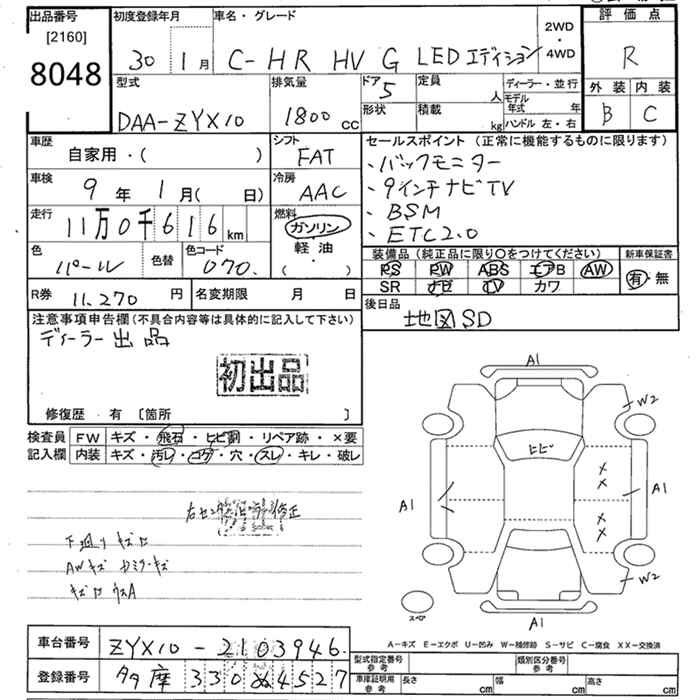 出品番号
[2160]
8048
初度登録年月
30 1月
車名・グレード
C-HR HV G LEDエディション
2WD
・
4WD
評価点
R
外装 内装
B C
型式
DAA-ZYX10
排気量
1800 cc
ドア
5
定員
人
形状
積載
kg
ディーラー・並行
モデル年式 年
ハンドル 左・右
車歴
自家用・( )
シフト
FAT
車検
9年 1月( 日)
冷房
AAC
走行
11万0千616km
燃料
ガソリン
・
軽油
・
( )
色
パール
色替
色コード
070.
R券 11,270 円
名変期限 月 日
セールスポイント(正常に機能するものに限ります)
、バックモニター
、9インチナビTV
、BSM
、ETC2.0
装備品(純正品に限り○をつけてください)
PS PW ABS エアB AW
SR ナビ TV カワ
新車保証書
有・無
後日品
地図SD
注意事項申告欄(不具合内容等は具体的に記入して下さい)
ディーラー出品
初出品
修復歴・有〔箇所 〕
検査員記入欄
FW キズ・飛石・ヒビ割・リペア跡・×要
内装 キズ・汚レ・コゲ・穴・スレ・キレ・破レ
下廻りキズ
AWキズ
A1
W2
ヒビ
A1
A1
W2
A1
スペア
A-キズ E-エクボ U-凹み W-補修跡 S-サビ C-腐食 XX-交換済
車台番号 ZYX10-2103946.
登録番号 多摩 330ぬ4527
型式指定番号
参考
類別区分番号
参考
車庫証明用
参考
長さ cm
幅 cm
高さ cm